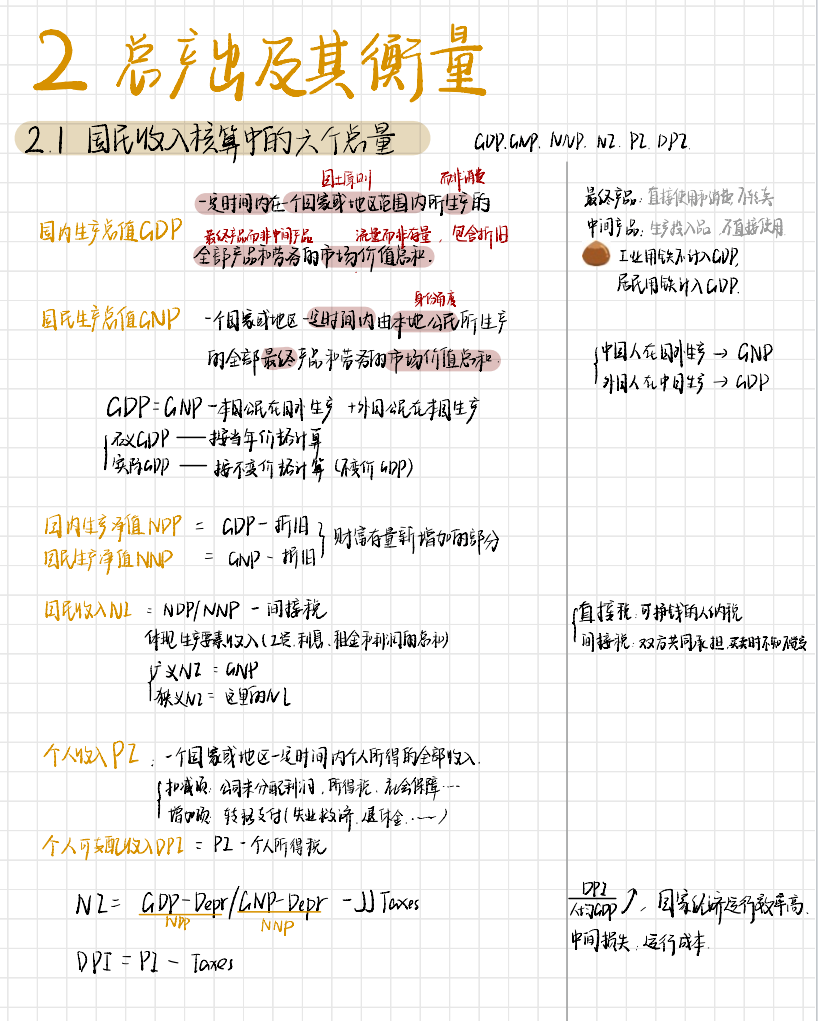 2 总产出及其衡量
2.1 国民收入核算中的六个总量
GDP.GNP. NNP. NI. PI. DPI.
国土原则 而非消费
一定时间内在一个国家或地区范围内所生产的
国内生产总值GDP
最终产品而非中间产品 流量而非存量，包含折旧
全部产品和劳务的市场价值总和.
最终产品: 直接使用和消费 不转卖
中间产品: 生产投入品 不直接使用
工业用铁不计入GDP,
居民用铁计入GDP.
身份角度
国民生产总值GNP 一个国家或地区一定时间内由本地公民所生产
的全部最终产品和劳务的市场价值总和.
中国人在国外生产 → GNP
外国人在中国生产 → GDP
GDP=GNP-本国公民在国外生产 +外国公民在本国生产
名义GDP —— 按当年价格计算
实际GDP —— 按不变价格计算 (不变价GDP)
国内生产净值NDP = GDP-折旧
国民生产净值NNP = GNP-折旧
财富存量新增加的部分
国民收入NI = NDP/NNP - 间接税
体现生产要素收入(工资、利息、租金和利润的总和)
广义NI = GNP
狭义NI = 这里的NI
直接税: 可挣钱的人纳税
间接税: 双方共同承担,
个人收入PI: 一个国家或地区一定时间内个人所得的全部收入.
扣减项: 公司未分配利润, 所得税、社会保障……
增加项: 转移支付(失业救济、退休金……)
个人可支配收入DPI = PI - 个人所得税
NI= GDP-Depr/GNP-Depr -JJ Taxes
NDP NNP
DPI = PI - Taxes
DPI
人均GDP ↗, 国家经济运行效率高.
中间损失, 运行成本.